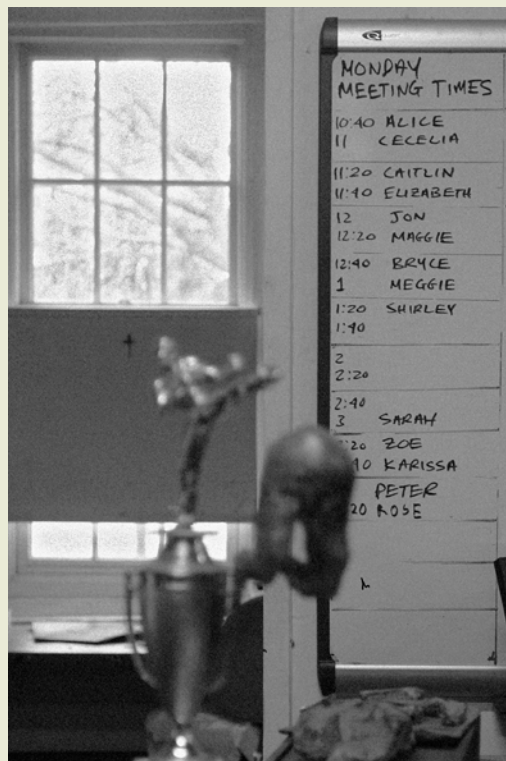 MONDAY
MEETING TIMES
10:40 ALICE
11 CECELIA
11:20 CAITLIN
11:40 ELIZABETH
12 JON
12:20 MAGGIE
12:40 BRYCE
1 MEGGIE
1:20 SHIRLEY
1:40
2
2:20
2:40
3 SARAH
:20 ZOE
40 KARISSA
PETER
20 ROSE